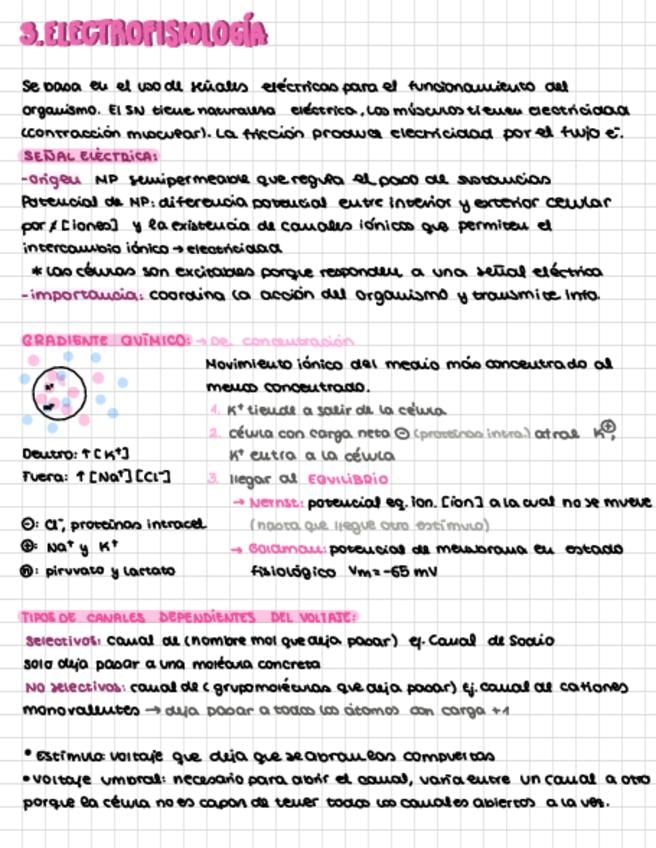 3. ELECTROFISIOLOGÍA
Se basa en el uso de señales eléctricas para el funcionamiento del
organismo. El SN tiene naturaleza eléctrica, los músculos tienen electricidad
(contracción muscular). La fricción produce electricidad por el flujo e⁻.
SEÑAL ELÉCTRICA:
-origen MP semipermeable que regula el paso de sustancias
Potencial de MP: diferencia potencial entre interior y exterior celular
por ≠ [iones] y la existencia de canales iónicos que permiten el
intercambio iónico → electricidad
* las células son excitables porque responden a una señal eléctrica
-importancia: coordina la acción del organismo y transmite info.
GRADIENTE QUÍMICO: → De concentración
Movimiento iónico del medio más concentrado al
menos concentrado.
1. K⁺ tiende a salir de la célula
2. célula con carga neta ⊖ (proteínas intra.) atrae K⊕,
K⁺ entra a la célula
3. llegar al EQUILIBRIO
→ Nernst: potencial eq. ion. [ion] a la cual no se mueve
(hasta que llegue otro estímulo)
→ Goldman: potencial de membrana en estado
fisiológico Vm = -65 mV
Dentro: ↑[K⁺]
Fuera: ↑[Na⁺][Cl⁻]
⊖: Cl⁻, proteínas intracel
⊕: Na⁺ y K⁺
ⓝ: piruvato y lactato
TIPOS DE CANALES DEPENDIENTES DEL VOLTAJE:
Selectivos: canal de (nombre mol que deja pasar) ej. Canal de Sodio
solo deja pasar a una molécula concreta
No selectivos: canal de (grupo moléculas que deja pasar) ej. canal de cationes
monovalentes → deja pasar a todos los átomos con carga +1
* Estímulo: voltaje que deja que se abran las compuertas
• voltaje umbral: necesario para abrir el canal, varía entre un canal a otro
porque la célula no es capaz de tener todos los canales abiertos a la vez.